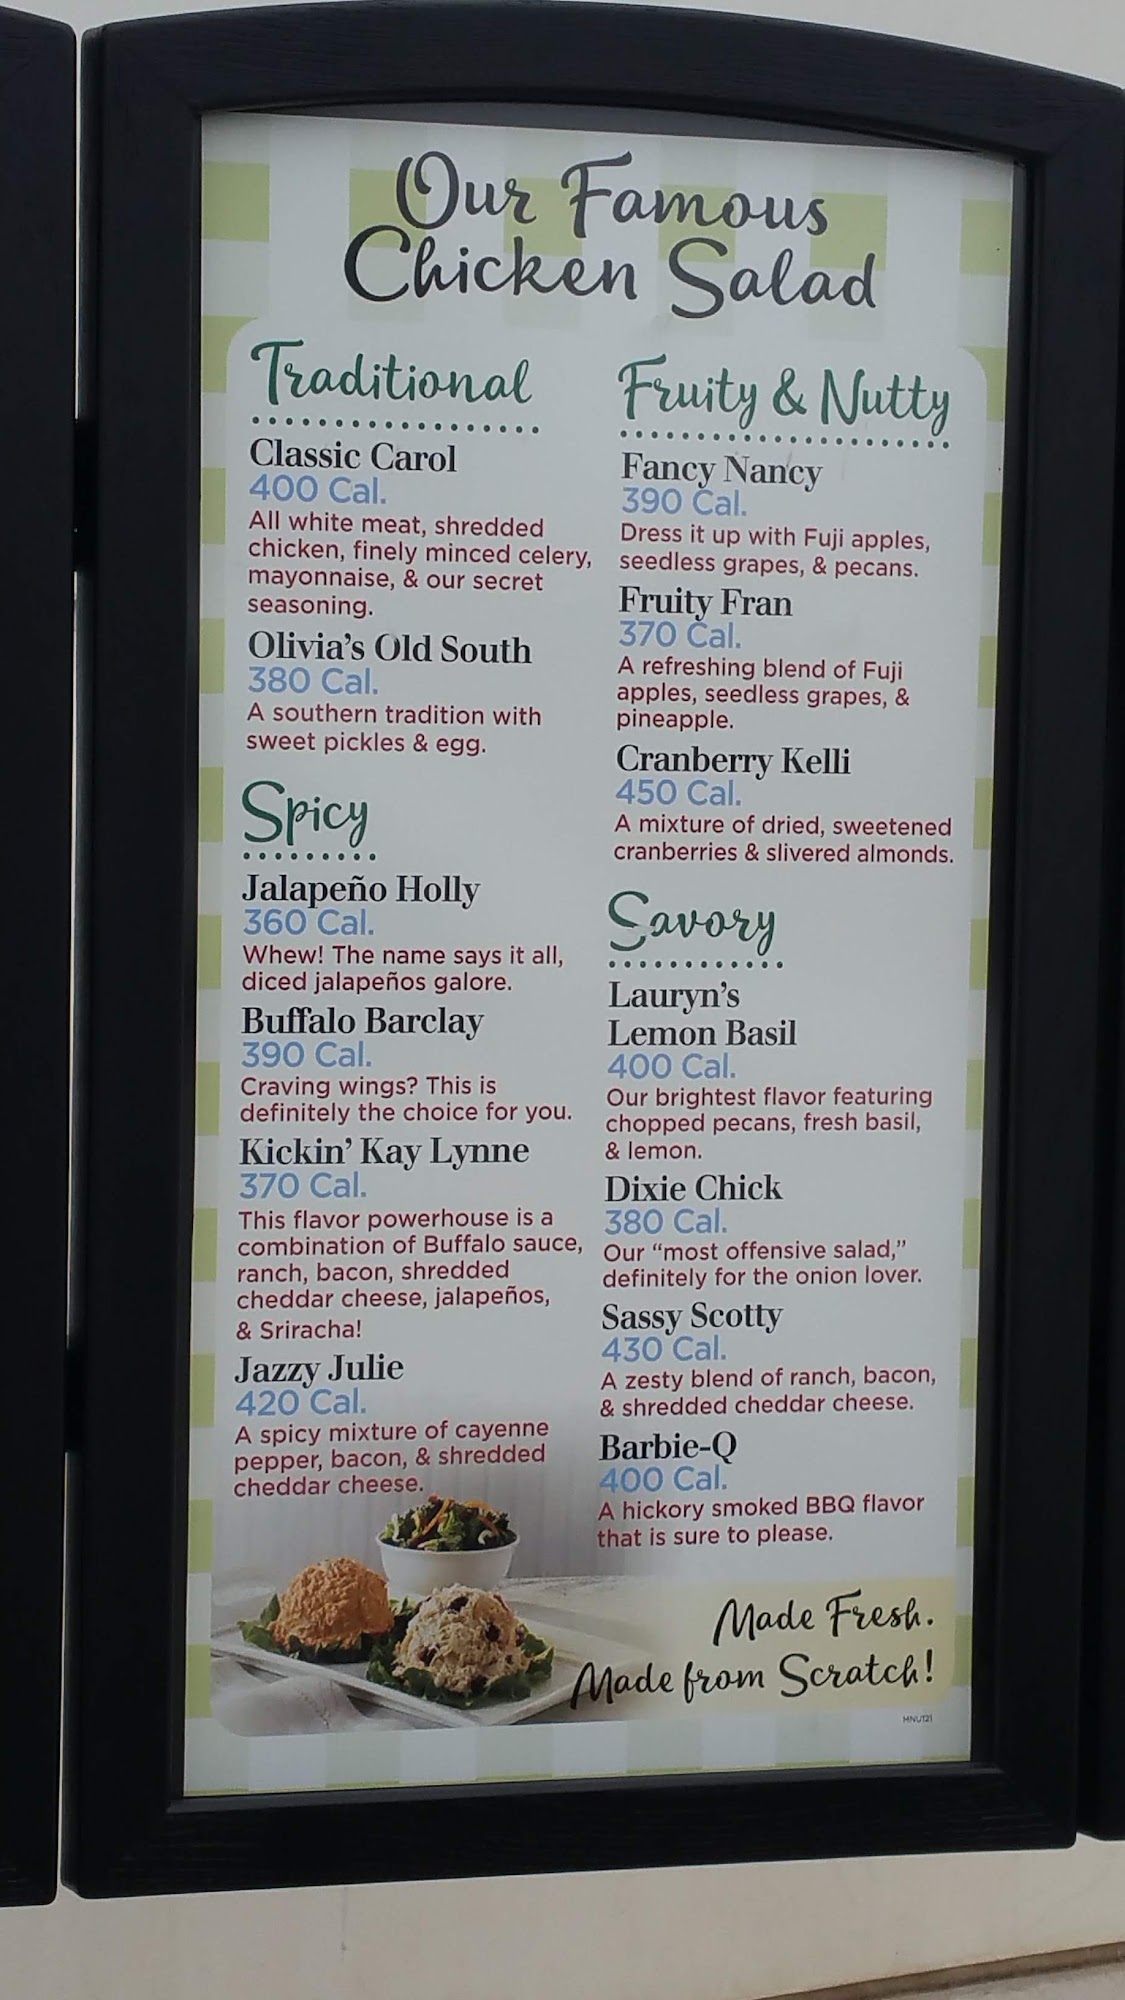 Our Famous
Chicken Salad
Traditional
Classic Carol
400 Cal.
All white meat, shredded
chicken, finely minced celery,
mayonnaise, & our secret
seasoning.
Olivia's Old South
380 Cal.
A southern tradition with
sweet pickles & egg.
Spicy
Jalapeño Holly
360 Cal.
Whew! The name says it all,
diced jalapeños galore.
Buffalo Barclay
390 Cal.
Craving wings? This is
definitely the choice for you.
Kickin' Kay Lynne
370 Cal.
This flavor powerhouse is a
combination of Buffalo sauce,
ranch, bacon, shredded
cheddar cheese, jalapeños,
& Sriracha!
Jazzy Julie
420 Cal.
A spicy mixture of cayenne
pepper, bacon, & shredded
cheddar cheese.
Fruity & Nutty
Fancy Nancy
390 Cal.
Dress it up with Fuji apples,
seedless grapes, & pecans.
Fruity Fran
370 Cal.
A refreshing blend of Fuji
apples, seedless grapes, &
pineapple.
Cranberry Kelli
450 Cal.
A mixture of dried, sweetened
cranberries & slivered almonds.
Savory
Lauryn's
Lemon Basil
400 Cal.
Our brightest flavor featuring
chopped pecans, fresh basil,
& lemon.
Dixie Chick
380 Cal.
Our "most offensive salad,"
definitely for the onion lover.
Sassy Scotty
430 Cal.
A zesty blend of ranch, bacon,
& shredded cheddar cheese.
Barbie-Q
400 Cal.
A hickory smoked BBQ flavor
that is sure to please.
Made Fresh.
Made from Scratch!
MNU121